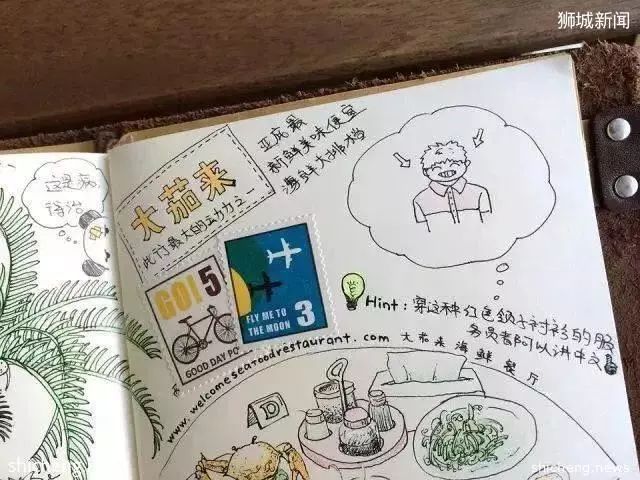 狮城新闻
亚庇最
新鲜美味便宜
海鲜大排档
这是病
待治
大茄来
此行最大的动力之一
GO! 5
GOOD DAY PO
FLY ME TO
THE MOON 3
Hint: 穿这种红色领子衬衫的服
务员都可以讲中文
www.welcomeseafoodrestaurant.com 大茄来海鲜餐厅
shicheng
shicheng.news